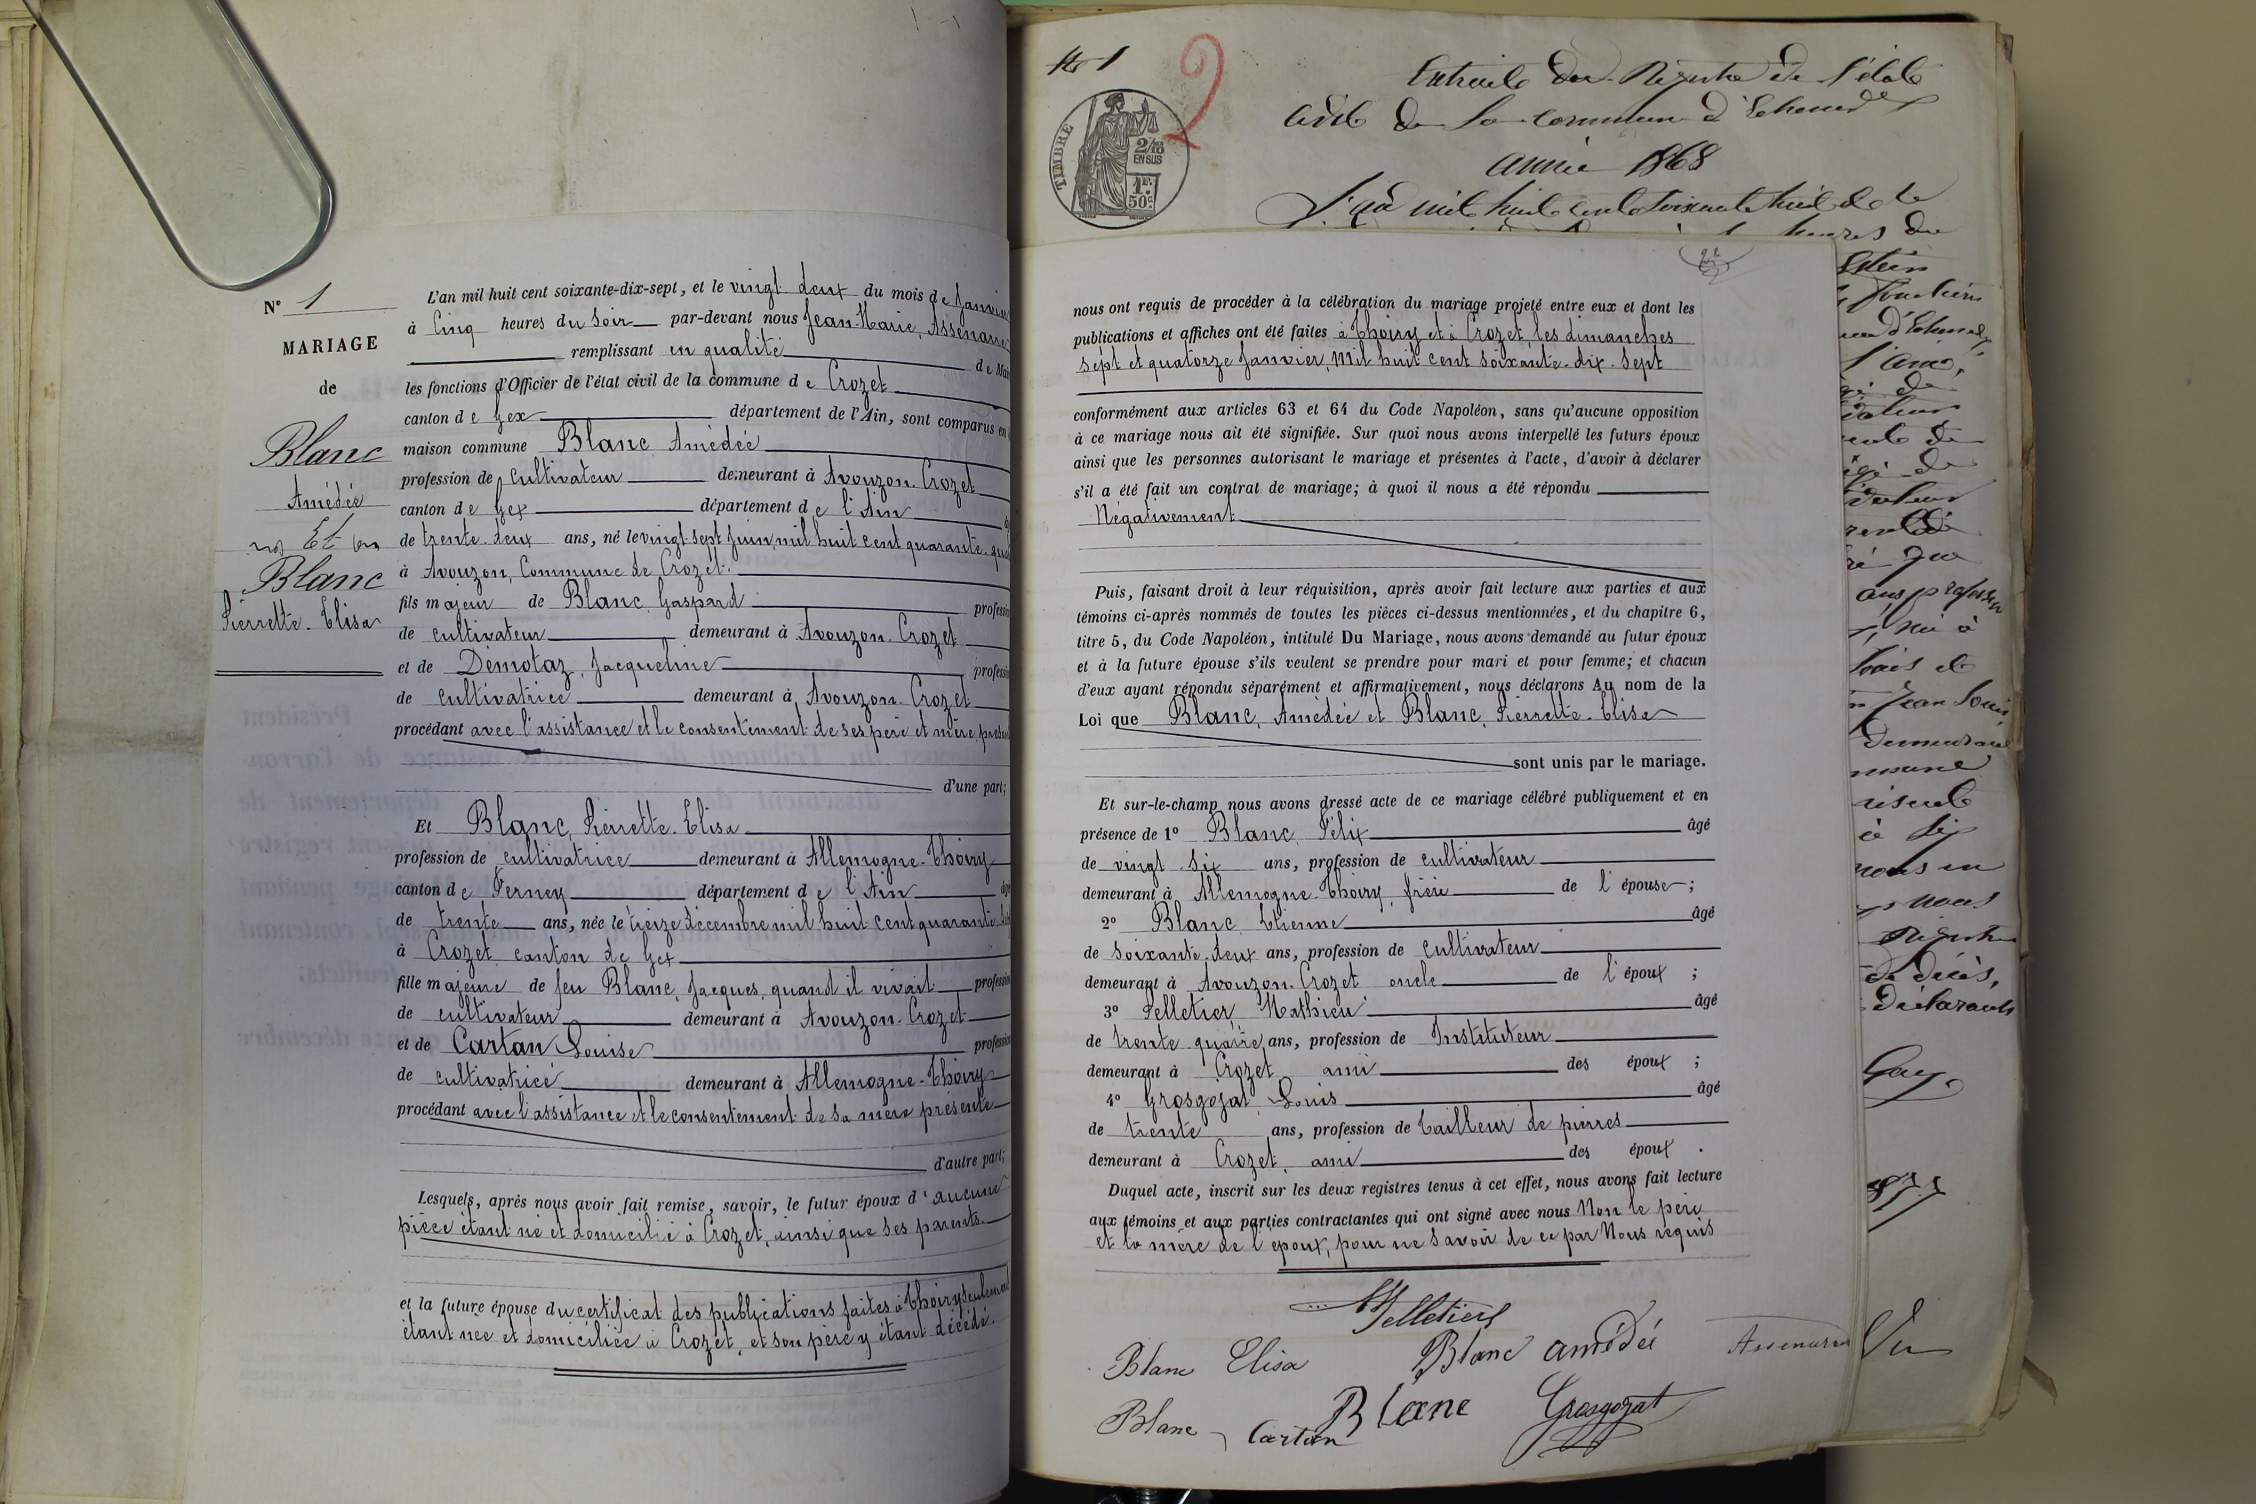 N° 1
MARIAGE
de
Blanc
Amédée
Et
Blanc
Pierrette-Elisa
L'an mil huit cent soixante-dix-sept, et le vingt deux du mois de Janvier
à Cinq heures du Soir par-devant nous Jean-Marie, Assenarre
remplissant en qualité de Mai
les fonctions d'Officier de l'état civil de la commune de Crozet
canton de Gex département de l'Ain, sont comparus en
maison commune Blanc Amédée
profession de cultivateur demeurant à Avouzon-Crozet
canton de Gex département de l'Ain
de trente-deux ans, né le vingt-sept Juin, mil huit cent quarante-qua
à Avouzon, Commune de Crozet.
fils majeur de Blanc, Gaspard professi
de cultivateur demeurant à Avouzon-Crozet
et de Démotaz, Jacqueline professi
de cultivatrice demeurant à Avouzon-Crozet
procédant avec l'assistance et le consentement de ses père et mère, présen
d'une part;
Et Blanc, Pierrette-Elisa
profession de cultivatrice demeurant à Allemogne-Thoiry
canton de Ferney département de l'Ain âg
de trente ans, née le treize décembre mil huit cent quarante-
à Crozet canton de Gex
fille majeure de feu Blanc, Jacques, quand il vivait professi
de cultivateur demeurant à Avouzon-Crozet
et de Cartan Louise professi
de cultivatrice demeurant à Allemogne-Thoiry
procédant avec l'assistance et le consentement de sa mère présente
d'autre part;
Lesquels, après nous avoir fait remise, savoir, le futur époux d'aucune
pièce étant né et domicilié à Crozet, ainsi que ses parents.
et la future épouse du certificat des publications faites à Thoiry seulement
étant née et domiciliée à Crozet, et son père y étant décédé.
N° 1
2
TIMBRE
2/10
EN SUS
1F.
50c.
Extrait du Registre de l'état
civil de la commune d'Echenevex
année 1868
L'an mil huit cent soixante huit et le
heures du
nous ont requis de procéder à la célébration du mariage projeté entre eux et dont les
publications et affiches ont été faites à Thoiry et à Crozet les dimanches
sept et quatorze Janvier, mil huit cent soixante-dix-sept
conformément aux articles 63 et 64 du Code Napoléon, sans qu'aucune opposition
à ce mariage nous ait été signifiée. Sur quoi nous avons interpellé les futurs époux
ainsi que les personnes autorisant le mariage et présentes à l'acte, d'avoir à déclarer
s'il a été fait un contrat de mariage; à quoi il nous a été répondu
Négativement
Puis, faisant droit à leur réquisition, après avoir fait lecture aux parties et aux
témoins ci-après nommés de toutes les pièces ci-dessus mentionnées, et du chapitre 6,
titre 5, du Code Napoléon, intitulé Du Mariage, nous avons demandé au futur époux
et à la future épouse s'ils veulent se prendre pour mari et pour femme; et chacun
d'eux ayant répondu séparément et affirmativement, nous déclarons Au nom de la
Loi que Blanc, Amédée et Blanc, Pierrette-Elisa
sont unis par le mariage.
Et sur-le-champ nous avons dressé acte de ce mariage célébré publiquement et en
présence de 1° Blanc Félix âgé
de vingt-six ans, profession de cultivateur
demeurant à Allemogne-Thoiry, frère de l'épouse;
2° Blanc, Etienne âgé
de soixante-deux ans, profession de cultivateur
demeurant à Avouzon-Crozet oncle de l'époux ;
3° Pelletier, Mathieu âgé
de trente-quatre ans, profession de Instituteur
demeurant à Crozet ami des époux ;
4° Grosgojat, Louis âgé
de trente ans, profession de Tailleur de pierres
demeurant à Crozet, ami des époux .
Duquel acte, inscrit sur les deux registres tenus à cet effet, nous avons fait lecture
aux témoins et aux parties contractantes qui ont signé avec nous Non le père
et la mère de l'époux, pour ne savoir de ce par Nous requis
Pelletier
Blanc Elisa Blanc amédée Assenarre
Blanc Cartan Blanc Grosgogat